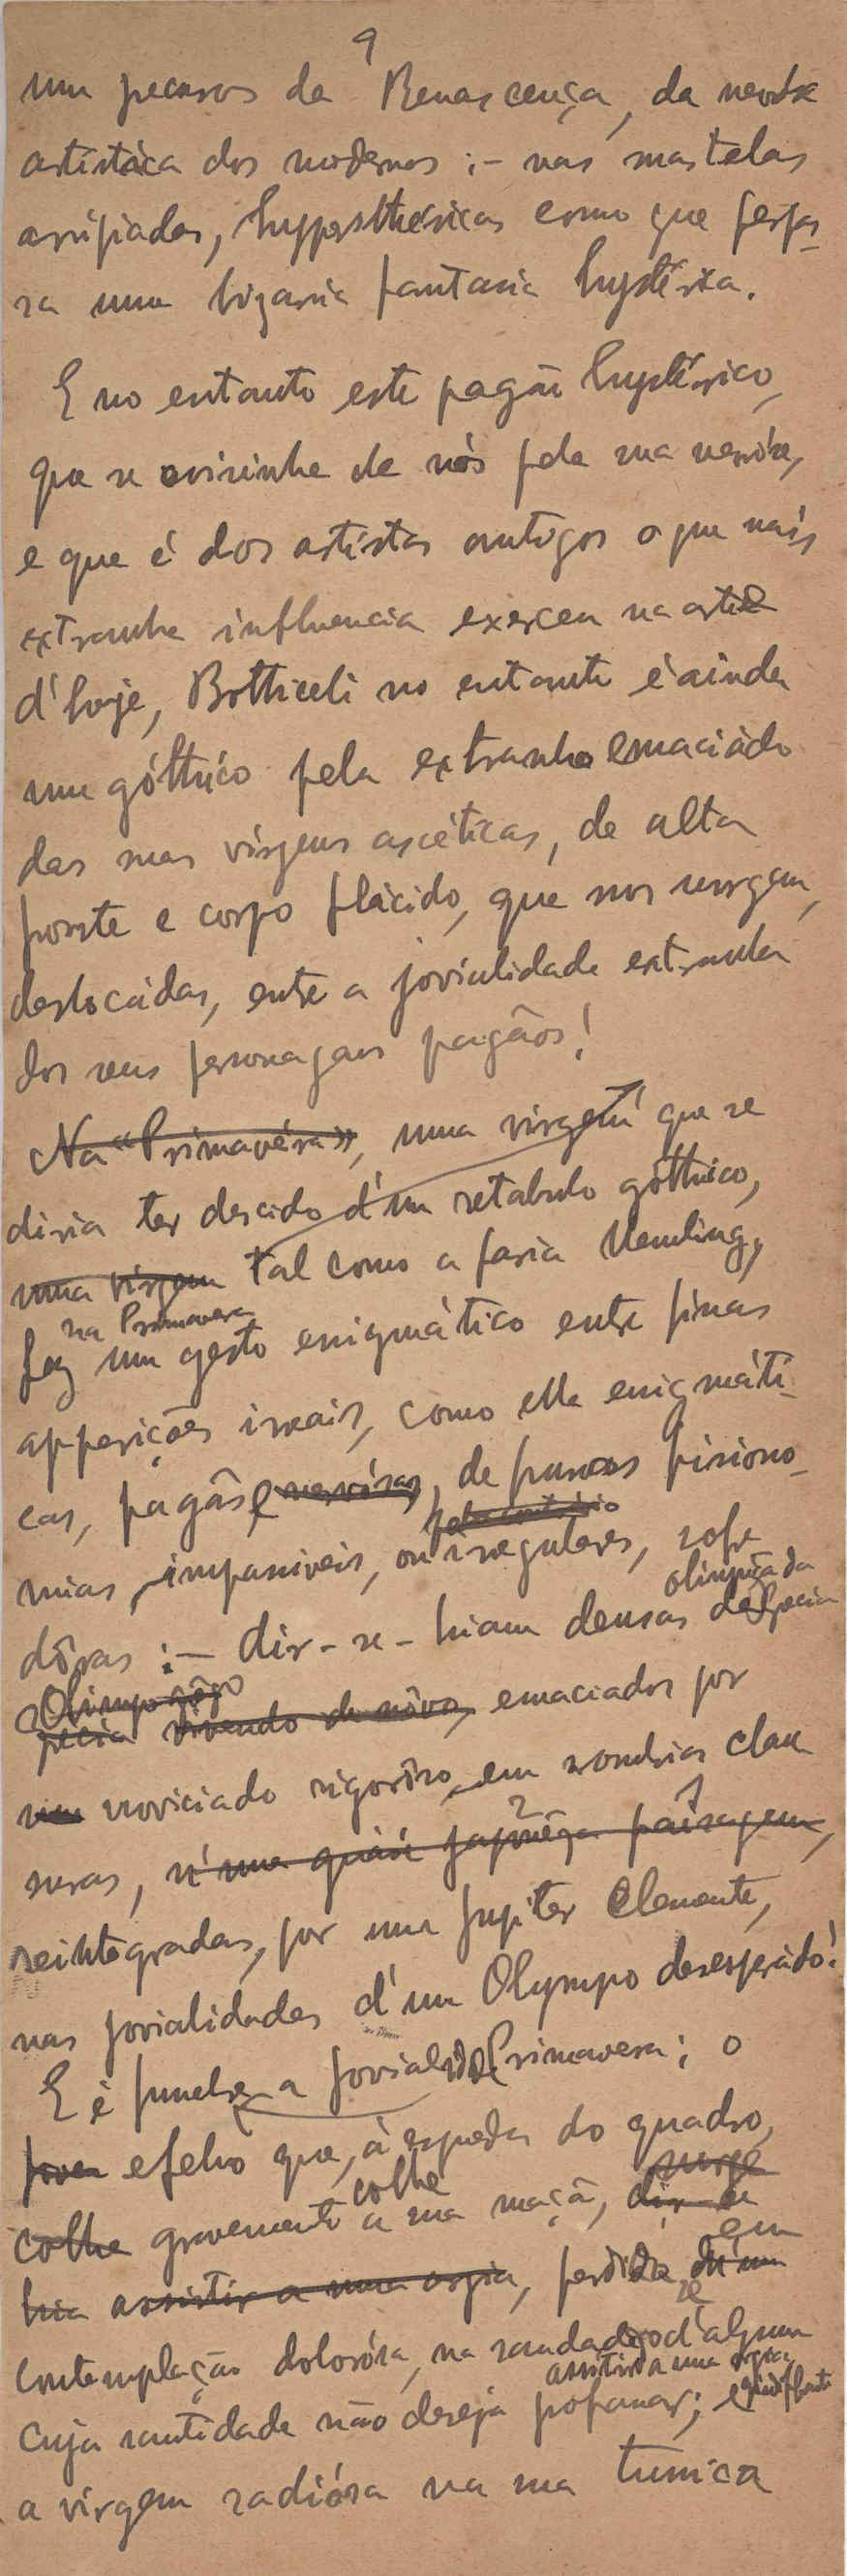 9
um precursor da Renascença, da nevróse
artística dos modernos :– nas suas telas
arripiadas, hyperesthésicas como que perpas-
sa uma bizarria fantasia hystérica.
E no entanto este pagão hystérico,
que se avisinha de nós pela sua nevróse,
e que é dos artistas antigos o que mais
extranha influencia exerceu na arte
d'hoje, Botticeli no entanto é ainda
um góthico pela extranho emaciádo
das suas virgens ascéticas, de alta
fronte e corpo flácido, que nos surgem,
deslocádas, entre a jovialidade extranha
dos seus personagens pagãos!
Na «Primavéra», uma virgem que se
diria ter descido d'um retabulo góthico,
uma virgem tal como a faria Memling,
na Primavera
faz um gesto enigmático entre finas
apparições irreais, como ella enigmáti-
cas, pagãs e nervósas, de puras fisiono-
pelo contrário
mias, impassiveis, ou irregulares, sofre
dôras :– dir-se-hiam deusas da Grecia
olimpica da
Olimpo
grecia vivendo de nôvo, emaciadas por
um noviciado rigorôso em sombrias clau
suras, n'uma quási japonêza paisagem,
2 1
reintegradas, por um Jupiter clemente,
nas jovialidades d'um Olympo desesperádo!
E é funebre a jovial Primavera; o
joven efebo que, à esquerda do quadro,
colhe surge
colhe gravemente a sua maçã, dir-se
em
hia assistir a uma orgia, perdido n'uma
contemplação dolorósa, na saudade d'algum
assistir a uma orgia
cuja santidade não deseja profanar; e
a virgem radiósa na sua tunica